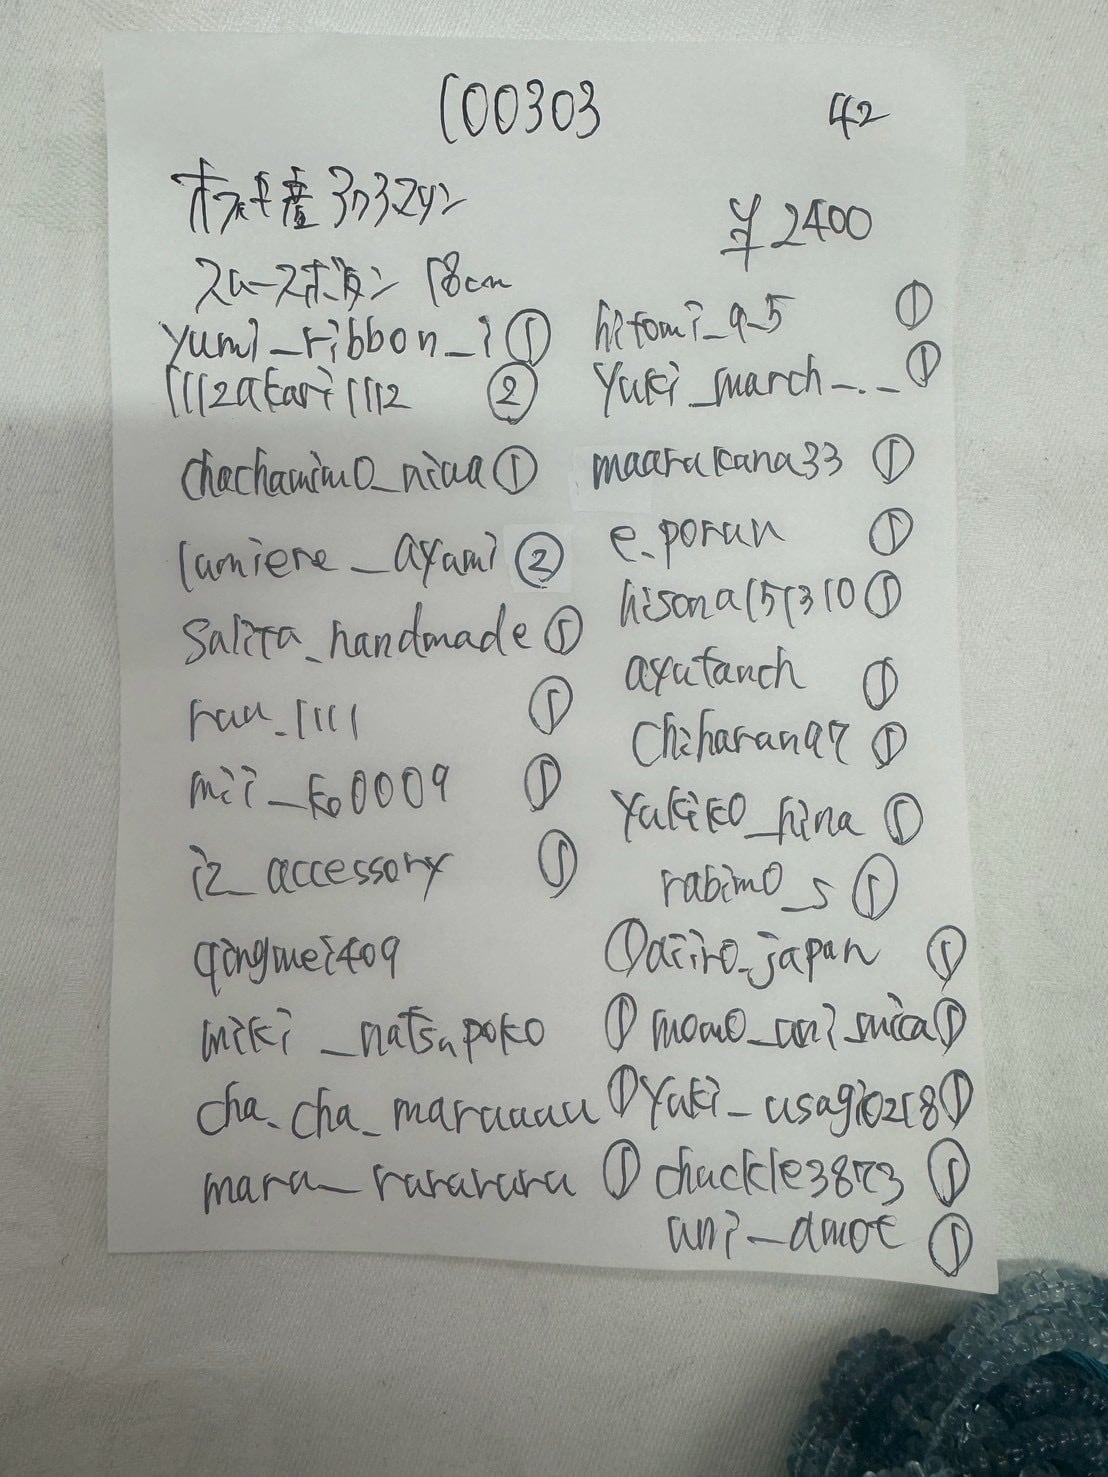 100303
42
¥2400
スムースボタン 18cm
yumi_ribbon_i ①
1112akari1112 ②
chachamimo_niwa ①
lumiere_ayami ②
salita_handmade ①
ruu_1111 ①
mii_ko0009 ①
iz_accessory ①
qingmei409 ①
miki_natsupoko ①
cha_cha_maruuuu ①
maru_rurururu ①
hitomi_9_5 ①
yuki_march_._ ①
maarukana33 ①
e_porun ①
hisona151310 ①
ayutanch ①
chiharun97 ①
yukiko_hina ①
rabimo_s ①
airo_japan ①
momo_uni_mica ①
yuki_usagi0218 ①
chuckle3873 ①
uni_amoe ①